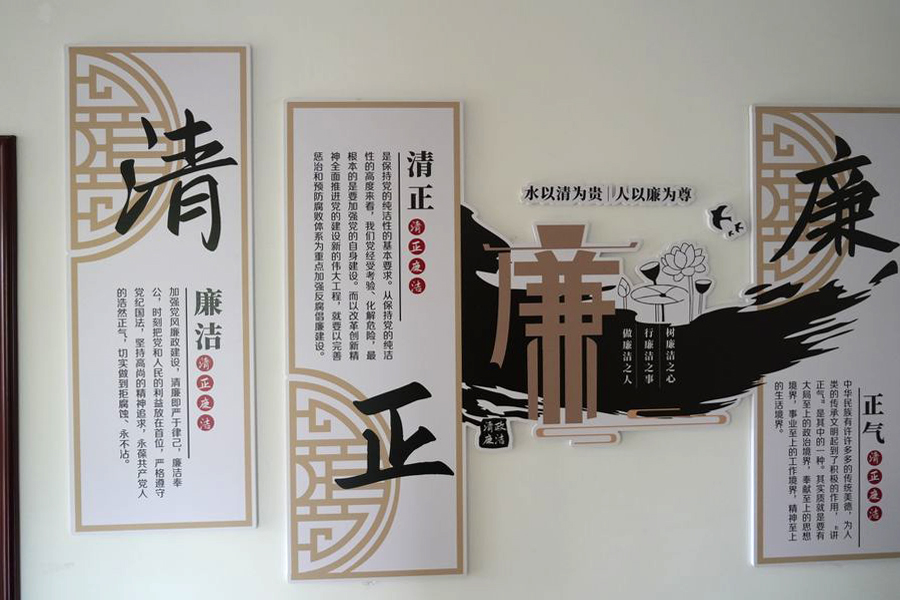 清
廉洁
清正廉洁
加强党风廉政建设，清廉即严于律己，廉洁奉
公，时刻把党和人民的利益放在首位，严格遵守
党纪国法，坚持高尚的精神追求，永葆共产党人
的浩然正气，切实做到拒腐蚀、永不沾。
清正
清正廉洁
是保持党的纯洁性的基本要求。从保持党的纯洁
性的高度来看，我们党经受考验、化解危险，最
根本的是要加强党的自身建设。而以改革创新精
神全面推进党的建设新的伟大工程，就要以完善
惩治和预防腐败体系为重点加强反腐倡廉建设。
正
水以清为贵|人以廉为尊
廉
树廉洁之心
行廉洁之事
做廉洁之人
政洁
清廉
廉
正气
清正廉洁
中华民族有许许多多的传统美德，为人
类的传承文明起到了积极的作用，“讲
正气”是其中的一种。其实质就是要有
大局至上的政治境界，奉献至上的思想
境界，事业至上的工作境界，精神至上
的生活境界。